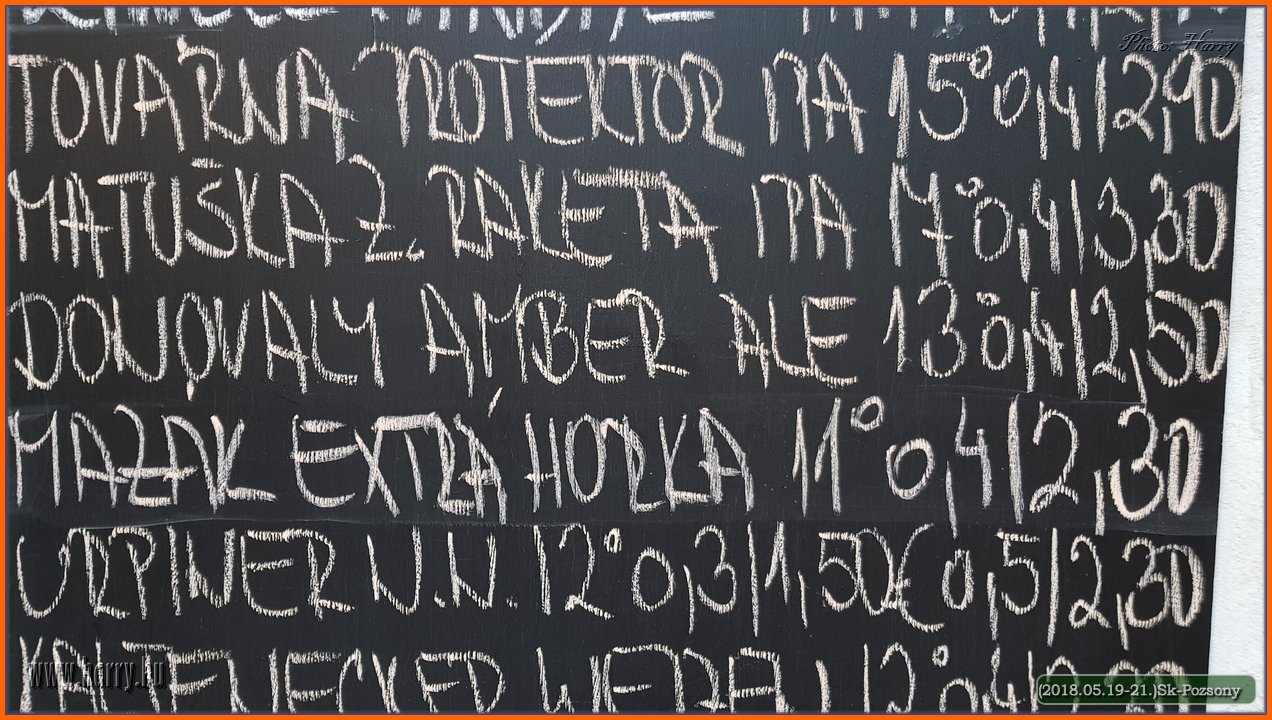 Photo: Harry
TOVARŇA PROTEKTOR IPA 15° 0,4 | 2,90
MATUŠKA Z. RAKETA IPA 17° 0,4 | 3,30
DONOVALY AMBER ALE 13° 0,4 | 2,50
MAZÁK EXTRA HORKA 11° 0,4 | 2,30
URPINER N.N. 12° 0,3 | 1,50€ 0,5 | 2,30
KALTENECKER WEPA
www.herry.hu
(2018.05.19-21.)Sk-Pozsony